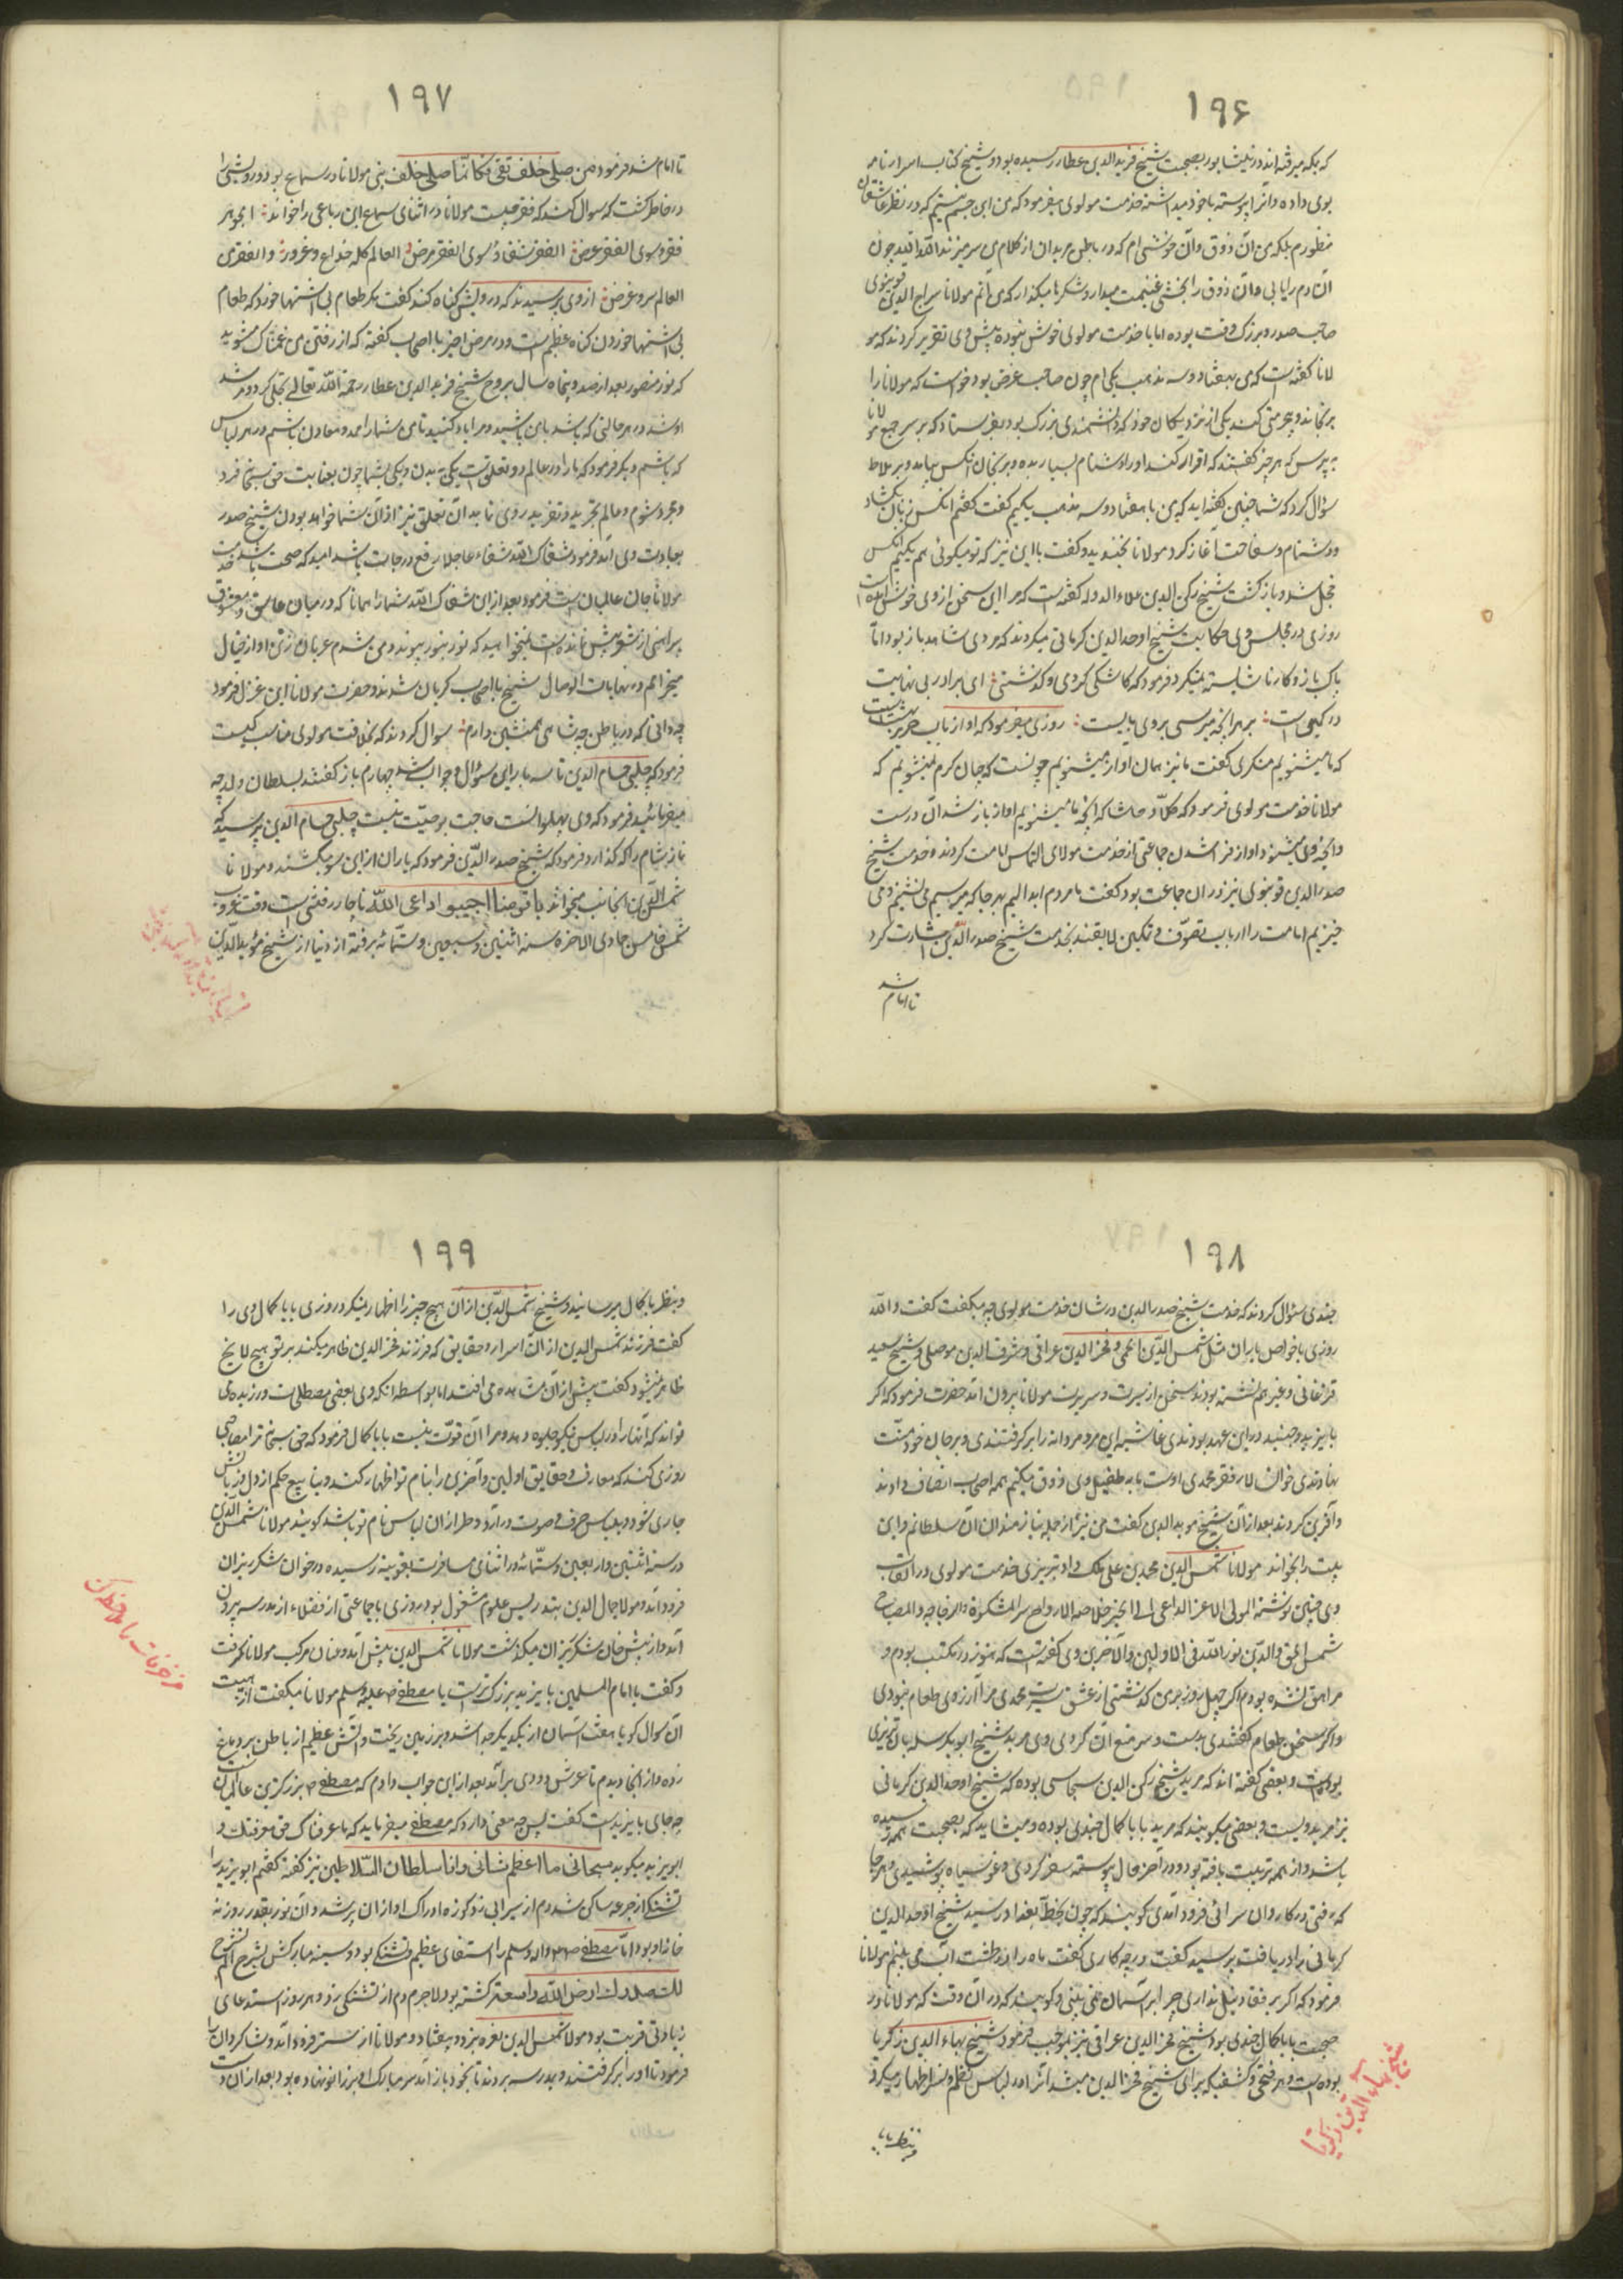 ۱۹۶
که بمکه میرفته اند در نیشابور بصحبت شیخ فرید الدین عطار رسیده بود و شیخ کتاب اسرار نامه
بوی داده و آنرا پیوسته با خود میداشته خدمت مولوی میفرمود که من این جسم نیستم که در نظر عاشقان
منظورم بلکه من آن ذوق و آن خوشی ام که در باطن مریدان از کلام من سر میزند الله الله چون
آن دم را یابی و آن ذوق را بچشی غنیمت میدار و شکرها میگذار که من آنم مولانا سراج الدین قونیوی
صاحب صدر و بزرگ وقت بوده اما با خدمت مولوی خوش نبوده پیش وی تقریر کردند که مو
لانا گفته است که من بهفتاد و سه مذهب یکی ام چون صاحب غرض بود خواست که مولانا را
برنجاند و بیحرمتی کند یکی از نزدیکان خود که دانشمندی بزرگ بود بفرستاد که بر سر جمع مولانا
به پرس که هر چیز گفتند که اقرار کند او را دشنام بسیار بده و برنجان آنکس بیامد و بر ملا
سؤال کرد که شما چنین گفته اید که من با هفتاد و سه مذهب یکیم گفت گفتم آنکس زبان بگشاد
و دشنام و سفاهت آغاز کرد مولانا بخندید و گفت با این نیز که تو میگوئی هم یکیم آنکس
خجل شد و باز گشت شیخ رکن الدین علاء الدوله گفته است که مرا این سخن از وی خوش آمده است
روزی در مجلس وی حکایت شیخ اوحد الدین کرمانی میکردند که مردی شاهد باز بود اما
پاک باز و کار ناشایسته نمیکرد فرمود که کاشکی کردی و گذشتی ؛ ای برادر بی نهایت
در گهی است ؛ بر هر انچه میرسی بر وی مایست ؛ روزی میفرمود که آواز رباب صریر در بهشت است
که ما میشنویم منکری گفت ما نیز همان آواز میشنویم چونست که چنان گرم نمیشویم که
مولانا خدمت مولوی فرمود که کلا و حاشا که انچه ما میشنویم آواز باز شدن آن درست
و انچه وی میشنود آواز فراز شدن جماعتی از خدمت مولانا التماس امامت کردند و خدمت شیخ
صدر الدین قونیوی نیز در آن جماعت بود گفت ما مردم ابدالیم بهر جا که میرسیم می نشینیم و می
خیزیم امامت را ارباب تصوف و تمکین لایقند بخدمت شیخ صدر الدین اشارت کرد
تا امام شد
۱۹۷
تا امام شد فرمود من صلی خلف تقی فکانما صلی خلف نبی مولانا در سماع بود درویشی را
در خاطر گشت که سوال کند که فقر چیست مولانا در اثنای سماع این رباعی را خواند ؛ الجوهر
فقر و سوی الفقر عرض ؛ الفقر شفاء و سوی الفقر مرض ؛ العالم کله خداع و غرور ؛ و الفقر من
العالم سر و غرض ؛ از وی پرسیدند که درویش کی گناه کند گفت مگر طعام بی اشتها خورد که طعام
بی اشتها خوردن گناه عظیم است و در مرض اخیر با اصحاب گفته که از رفتن من غمناک مشوید
که نور منصور بعد از صد و پنجاه سال بروح شیخ فرید الدین عطار رحمة الله تعالی تجلی کرد و مرشد
او شد در هر حالتی که باشید با من باشید و مرا یاد کنید تا من شما را ممد و معاون باشم در هر لباس
که باشم دیگر فرمود که ما را در عالم دو تعلق است یکی به بدن و یکی بشما چون بعنایت حق سبحانه فرد
و مجرد شوم و عالم تجرید و تفرید روی نماید آن تعلق نیز از آن شما خواهد بودن شیخ صدر
بعیادت وی آمد فرمود شفاک الله شفاء عاجلا رفع درجات باشد امید که صحت باشد خدمت
مولانا جان عالمیان است فرمود بعد از این شفاک الله شما را همانا که در میان عاشق و معشوق
پیراهنی از شعر بیش نمانده است نمیخواهید که نور بنور پیوندد من شدم عریان ز تن او از خیال
میخرامم در نهایات الوصال شیخ با اصحاب گریان شدند و حضرت مولانا این غزل فرمود
چه دانی که در باطن چه شاهی همنشین دارم ؛ سوال کردند که بخلافت مولوی مناسب کیست
فرمود که چلبی حسام الدین تا سه بار این سؤال و جواب شد چهارم باز گفتند بسلطان ولد چه
میفرمائید فرمود که وی پهلوانست حاجت بوصیت نیست چلبی حسام الدین پرسید که
نماز شام را که گذارد فرمود که شیخ صدر الدین فرمود که یاران از این سو میکشند و مولانا
شمس الدین آنجانب میخواند یا قومنا اجیبوا داعی الله ناچار رفتنی است وقت غروب
شمس خامس جمادی الاخره سنه اثنین و سبعین و ستمائه برفته از دنیا از شیخ مؤید الدین
۱۹۸
جندی سؤال کردند که خدمت شیخ صدر الدین در شان خدمت مولوی چه میگفت گفت و الله
روزی با خواص یاران مثل شمس الدین ایکی و فخر الدین عراقی و شرف الدین موصلی و شیخ سعید
فرغانی و غیرهم نشسته بودند سخنی از سیرت و سریرت مولانا بیرون آمد حضرت فرمود که اگر
بایزید و جنید در این عهد بودندی غاشیه این مرد مردانه را بر گرفتندی و بر جان خود منت
نهادندی خوان سالار فقر محمدی اوست ما به طفیل وی ذوق میکنیم همه اصحاب انصاف دادند
و آفرین کردند بعد از آن شیخ موید الدین گفت من نیز از جمله نیازمندان آن سلطانم و این
بیت را بخواند مولانا شمس الدین محمد بن علی ملک داد تبریزی خدمت مولوی در القاب
وی چنین نوشته المولی الاعز الداعی الی الخیر خلاصة الارواح سر المشکوة و الزجاجه و المصباح
شمس الحق و الدین نور الله فی الاولین و الآخرین وی گفته است که هنوز در مکتب بودم و
مراهق نشده بودم اگر چهل روز بر من گذشتی از عشق سیرت محمدی مرا آرزوی طعام نبودی
و اگر سخن طعام گفتندی بدست و سر منع آن کردمی وی مرید شیخ ابو بکر سله باف تبریزی
بوده است و بعضی گفته اند که مرید شیخ رکن الدین سجاسی بوده که شیخ اوحد الدین کرمانی
نیز مرید ویست و بعضی میگویند که مرید بابا کمال جندی بوده و میشاید که بصحبت همه رسیده
باشد و از همه تربیت یافته بود و در آخر حال پیوسته سفر کردی و نمد سیاه پوشیدی و هر جا
که رفتی در کاروان سرائی فرود آمدی گویند که چون بخطه بغداد رسید شیخ اوحد الدین
کرمانی را دریافت پرسید گفت در چه کاری گفت ماه را در طشت آب می بینم مولانا
فرمود که اگر بر قفا دنبل نداری چرا بر آسمان نمی بینی و گویند که در آن وقت که مولانا در
صحبت بابا کمال جندی بود شیخ فخر الدین عراقی نیز بموجب فرمود شیخ بهاء الدین زکریا
بوده است و هر فتحی و کشفی که برای شیخ فخر الدین میشد آنرا در لباس نظم و نثر اظهار میکرد
شیخ بهاء الدین زکریا
و بنظر بابا
۱۹۹
و بنظر بابا کمال میرسانید و شیخ شمس الدین از آن هیچ چیز را اظهار نمیکرد روزی بابا کمال وی را
گفت فرزند شمس الدین از آن اسرار و حقایق که فرزند فخر الدین ظاهر میکند بر تو هیچ لایح
ظاهر نمیشود گفت پیش از آن مشاهده می افتد اما بواسطه آنکه وی بعضی مصطلحات ورزیده می
تواند که آنها را در لباس نیکو جلوه دهد و مرا آن قوت نیست بابا کمال فرمود که حق سبحانه ترا مصاحبی
روزی کند که معارف و حقایق اولین و آخرین را بنام تو اظهار کند و ینابیع حکم از دل و زبانش
جاری شود و بلباس حرف و صوت در آرد و طراز آن لباس نام تو باشد گویند مولانا شمس الدین
در سنه اثنتین و اربعین و ستمائه در اثنای مسافرت بقونیه رسیده در خوان شکر ریزان
فرود آمد و مولانا جلال الدین بتدریس علوم مشغول بود روزی با جماعتی از فضلاء از مدرسه بیرون
آمد و از پیش خان شکر ریزان میگذشت مولانا شمس الدین پیش آمد و عنان مرکب مولانا گرفت
و گفت یا امام المسلمین بایزید بزرگتر است یا مصطفی ص علیه و سلم مولانا میگفت از هیبت
آن سوال گویا هفت آسمان از یکدیگر جدا شد و بر زمین ریخت و آتش عظیم از باطن بر دماغ
زده و از آنجا دیدم تا عرش دودی بر آمد بعد از این جواب دادم که مصطفی ص بزرگترین عالمیان است
چه جای بایزید است گفت پس چه معنی دارد که مصطفی میفرماید که ما عرفناک حق معرفتک و
ابویزید میگوید سبحانی ما اعظم شانی و انا سلطان السلاطین نیز گفته گفتم ابویزید را
تشنگی از جرعه ساکن شد دم از سیرابی زد کوزه ادراک او از آن پر شد و آن نور بقدر روزنه
خانه او بود اما مصطفی ص و اله و سلم را استسقای عظیم و تشنگی بود و سینه مبارکش بشرح الم نشرح
لک صدرک ارض الله واسعة گشته بود لاجرم دم از تشنگی زد و هر روز استدعای
زیادتی قربت بود مولانا شمس الدین نعره بزد و بیفتاد و مولانا از استر فرود آمد و شاگردان را
فرمود تا او را بر گرفتند و بمدرسه بردند تا بخود باز آمد سر مبارک او بر زانو نهاده بود بعد از آن دست
مزخرفات را ملاحظه کن